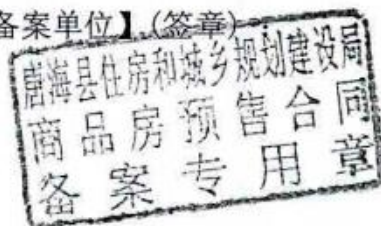 备案单位】(签章)
唐海县住房和城乡规划建设局
商品房预售合同
备案专用章